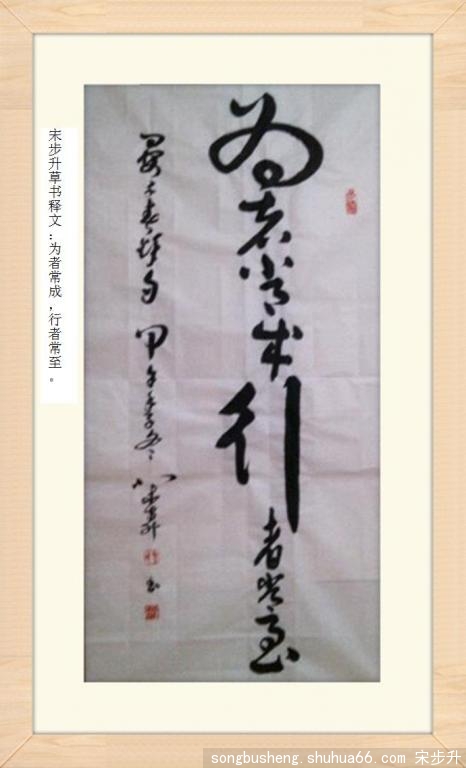 为者常成行者常至
晏子春秋句 甲午季冬 宋步升 书
宋步升草书释文：为者常成，行者常至。
songbusheng.shuhua66.com 宋步升